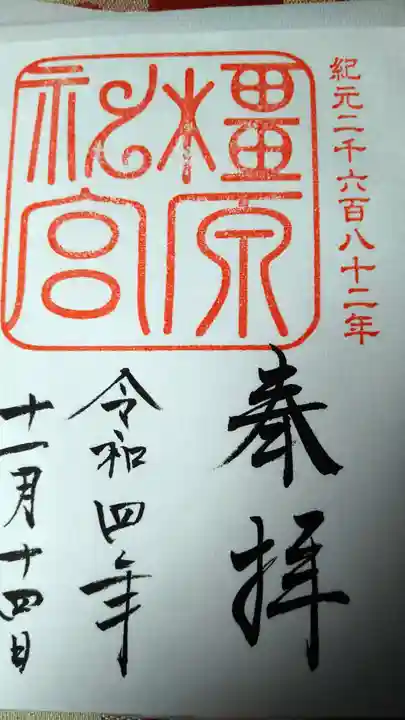 紀元二千六百八十二年
橿原
神宮
奉拝
令和四年
十一月十四日